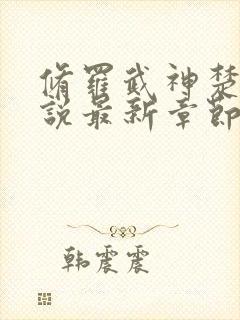 脩羅武神楚
說最新章節
韩震震